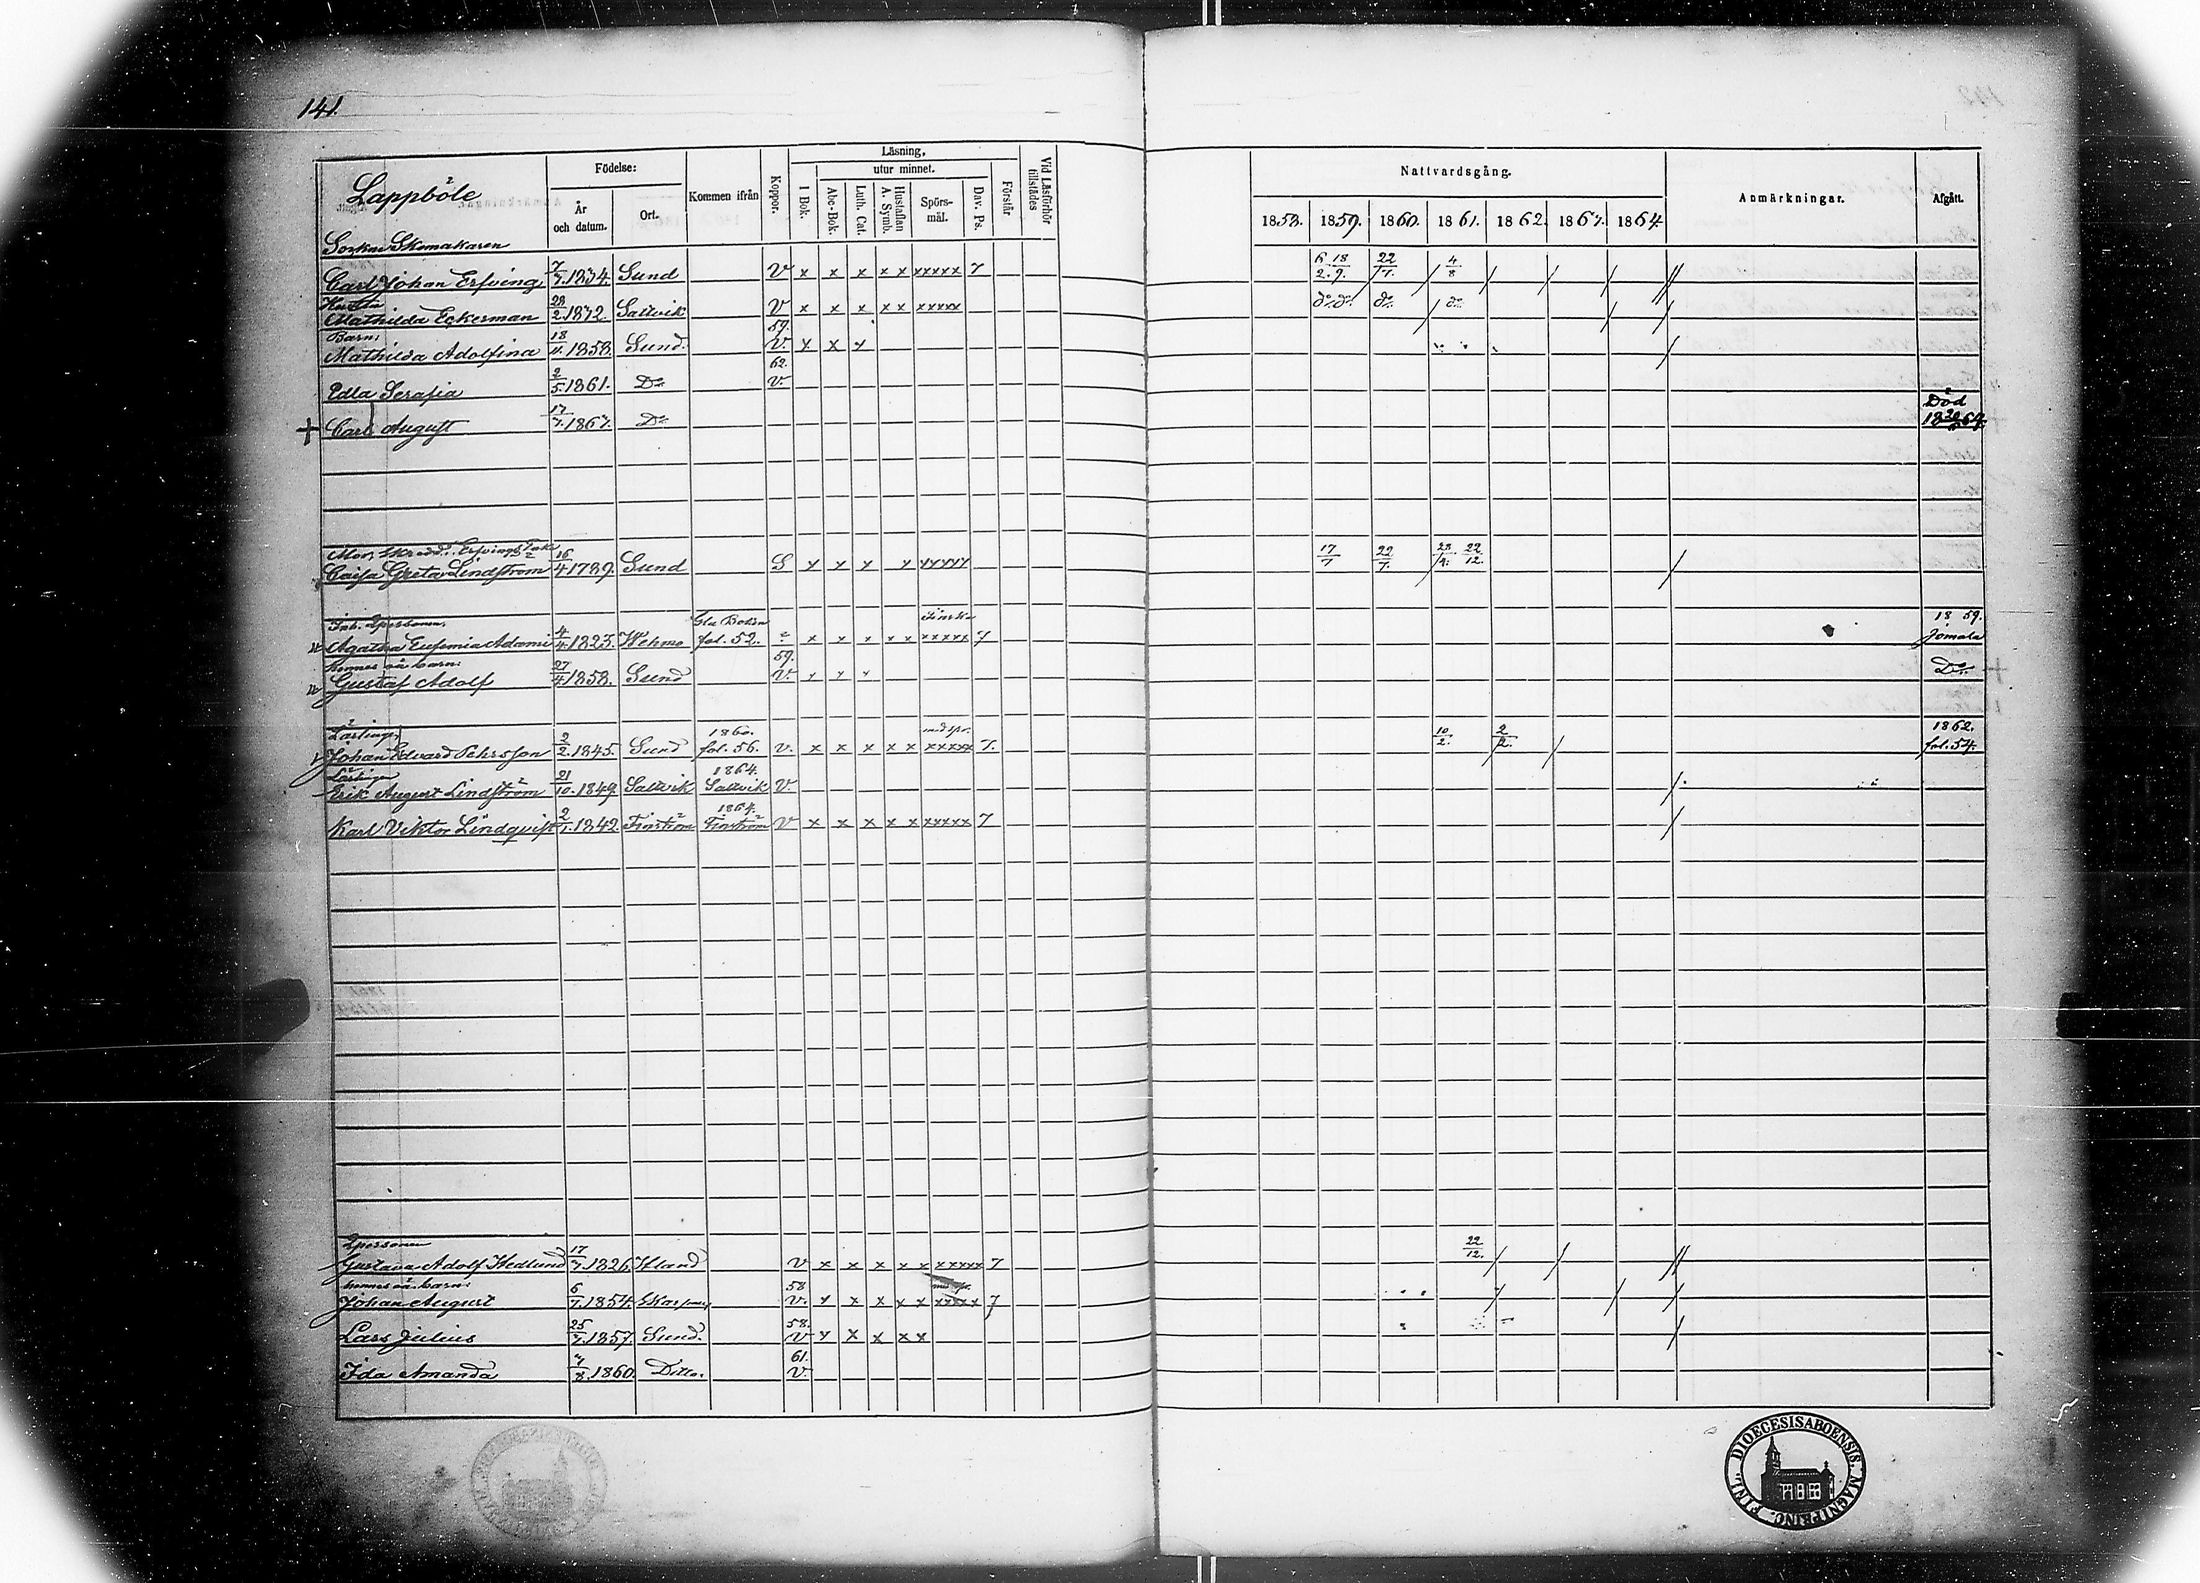 141.
Lappböle
Födelse:
År och datum.
Ort.
Kommen ifrån
Koppor.
Läsning,
utur minnet.
I Bok.
Abc-Bok.
Luth. Cat.
Hustaflan A. Symb.
Spörs-mål.
Dav. Ps.
Förstår.
Vid Läsförhör tillstädes
Nattvardsgång.
1858. 1859. 1860. 1861. 1862. 1863. 1864.
Anmärkningar.
Afgått.
Sockne Skomakaren
Carl Johan Erfving 7/3.1834. Sund V x x x x x xxxxx 7 6/2. 18/9. 22/7. 4/8
Hustru
Mathilda Eckerman 28/2.1832. Saltvik V x x x x x xxxxx do. do. do. do.
Barn: 59.
Mathilda Adolfina 18/11.1858. Sund. V. x x x
62.
Edla Serafia 2/5.1861. Do V.
Död
Carl August 17/3.1863. Do 18 64.
Erfvings
Caisa Greta Lindström 16/4.1789. Sund S x x x x xxxxx 17/7 22/7. 22/12.
Inh. Qpersonen. Finska 18 59.
Agatha Eufemia Adami 4/4.1823. Wehmo fol. 52. x x x x x xxxxx 7 Jomala
hennes oä. barn: 59.
Gustaf Adolf 27/4.1858. Sund V. x x x Do.
Lärling 1860. med spr. 1862.
Johan Edvard Pehrsson 2/2.1845. Sund fol. 56. v. x x x x x xxxxx 7. 10/2. 2/2. fol. 54.
Lärlingen 1864.
Erik August Lindström 21/10.1849 Saltvik Saltvik V.
1864.
Karl Viktor Lindqvist 2/1.1842. Finström Finström V x x x x x xxxxx 7
Qpersonen
Gustava Adolf. Hedlund 17/3.1826. V x x x x x xxxxx 7 22/12.
hennes oä. barn: 58
Johan August 6/7.1854. V. x x x x x xxxxx 7
58.
Lars Julius 25/3.1857. Sund. V x x x x x
61.
Ida Amanda 3/8.1860. Ditto. V.
FINL. DIOECESIS ABOENSIS. MAGNI PRINC.